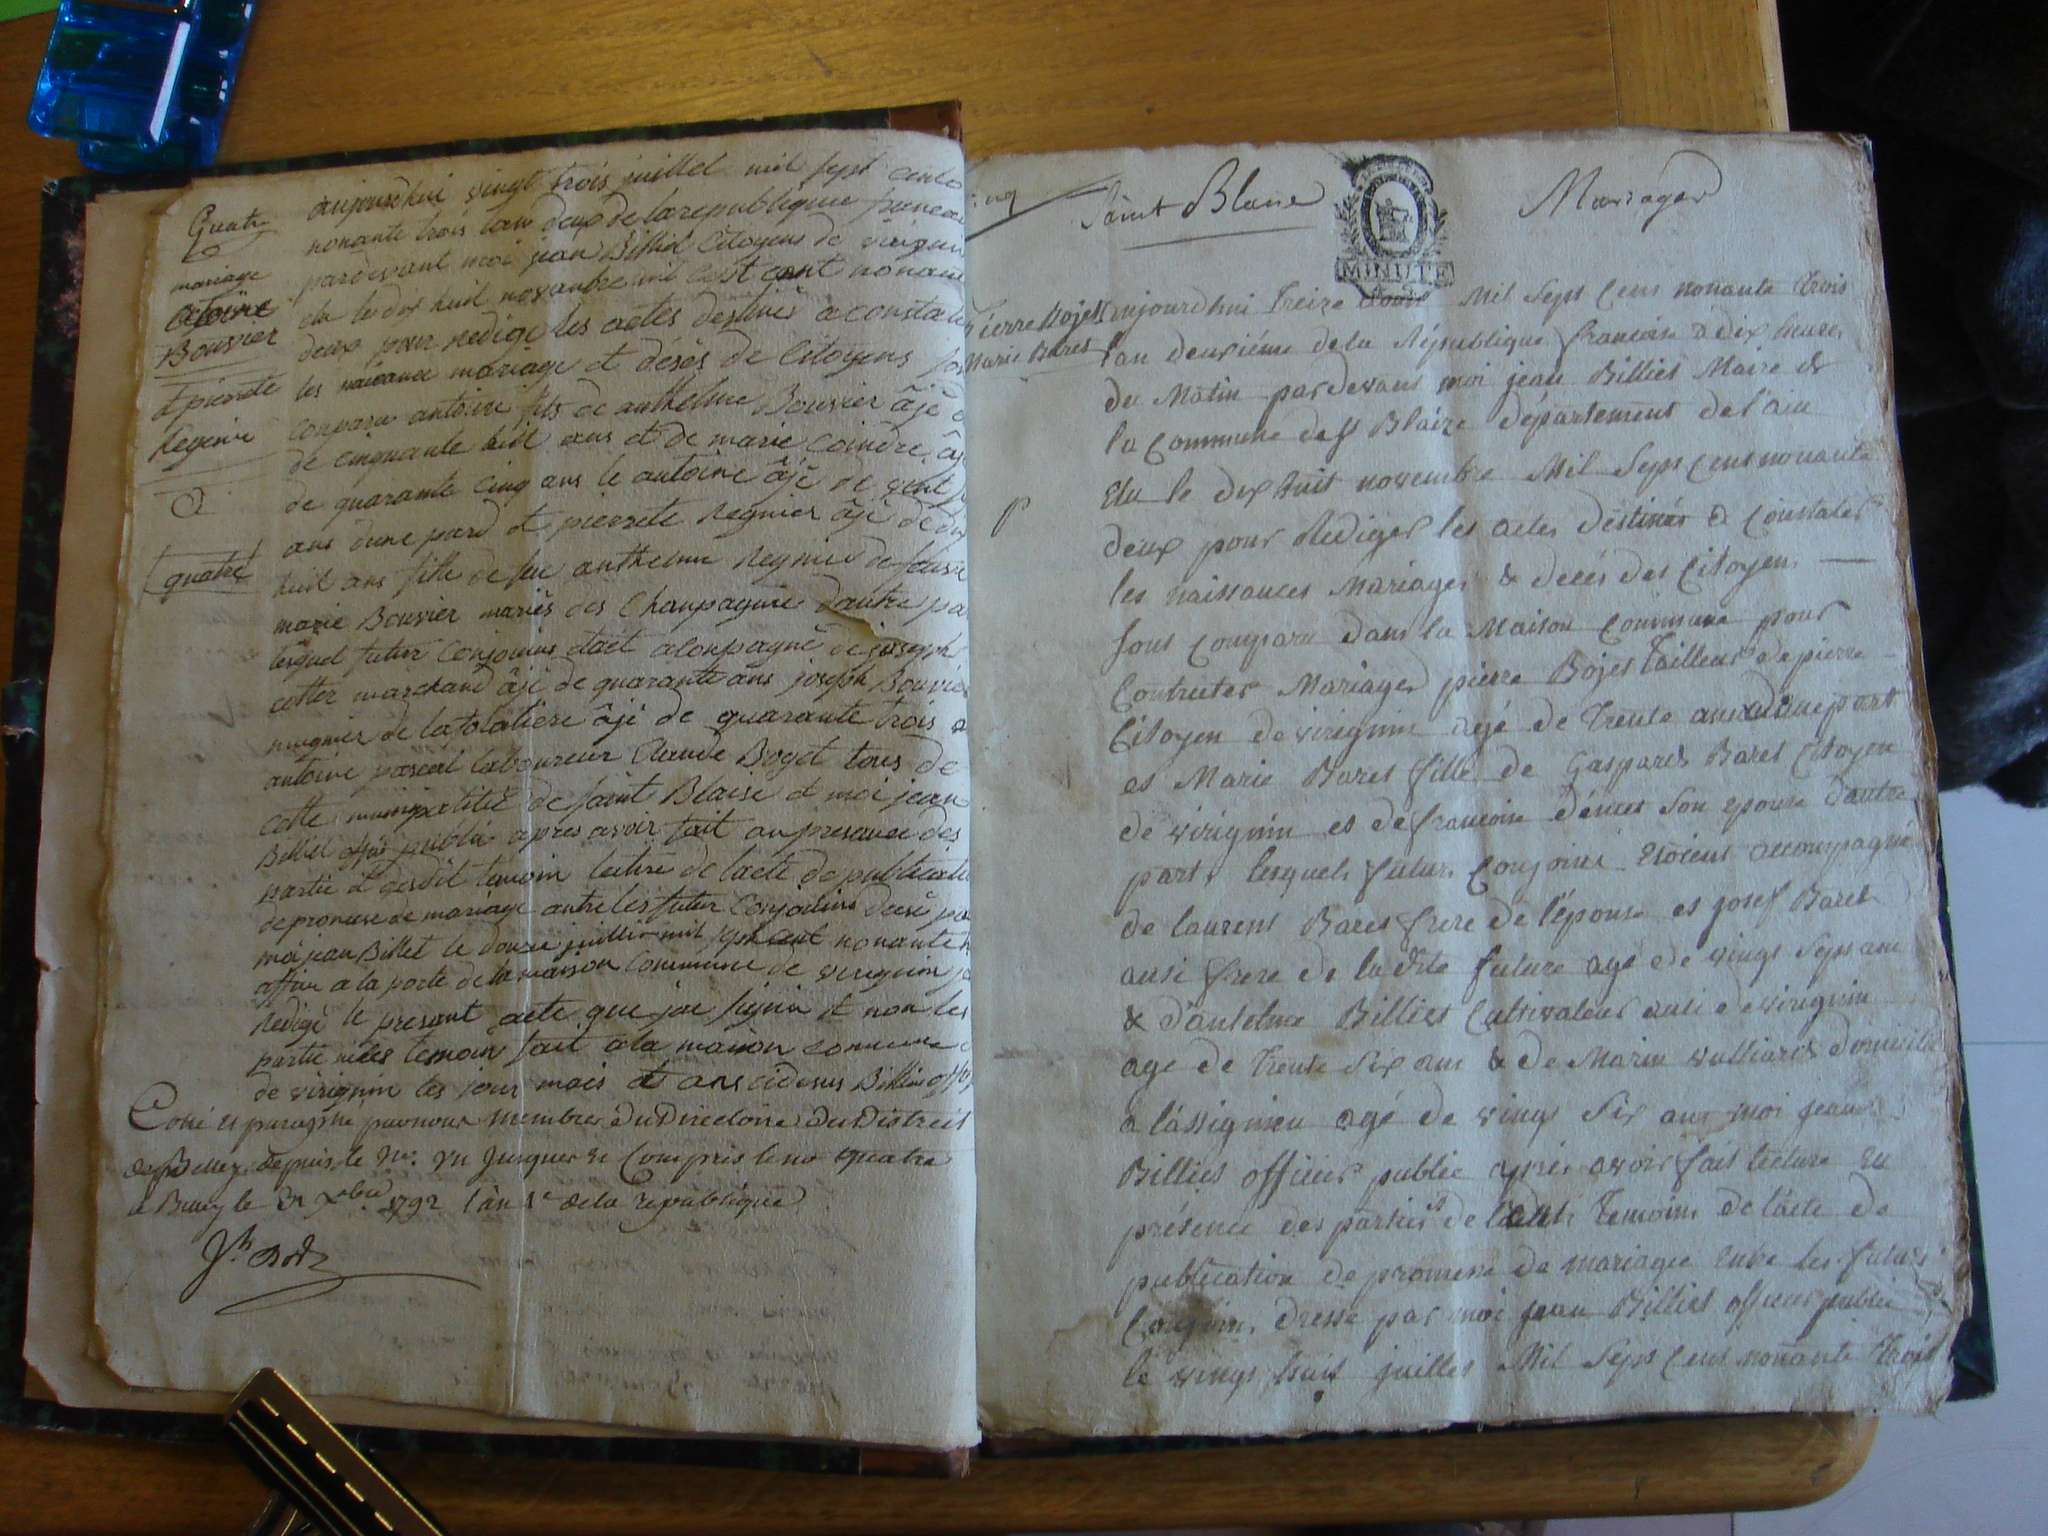 Quatre
mariage
Antoine
Bouvier
et pierrete
Regnier
quatre
aujourdhui vingt trois juillet mil sept cents
nonante trois lan deux de la republique francai
pardevant moi jean Billiet Citoyens de virignin
elu le dix huit novembre mil cest cent nonante
deux pour redige les actes destines a constate
les naicance mariage et déses de Citoyens
conparu antoine fils de anthelme Bouvier âjé
de cinquante huit ans et de marie Coindre âjé
de quarante cinq ans le antoine âjé de vint
ans dune pard et pierrete Regnier âjé de dix
huit ans fille de feu anthelme Regnier de
marie Bouvier mariés des Champagnie dautre pa
lesquel futur Conjoiins etoet aconpagné de joseph
cotter marchand âjé de quarante ans joseph Bouvier
mugnier de lafolatiere âjé de quarante trois
antoine pascal laboureur Claude Boget tous de
cette municipalitié de saint Blaise et moi jean
Billiet offis publie apres avoir fait an presance des
partie et desdit temoin lecture de lacte de publicati
de promese de mariage antre les futur Conjoiins
moi jean Billet le douze juillier mil sept cent nonante
affice a la porte de la maison Commune de virignin
Redigé le presant acte que jai signié et non les
partie ni les temoin fait a la maison commune
de virignin les jour mois et ans cidesus Billiet offis
Cotté et paraphé par nous membres du Directoire du District
de Belley depuis le no. un jusques et Compris le no quatre
a Belley le 31 xbre 1792 l'an 1er de la république
Saint Blaise
MINUTE
Mariages
Pierre Bojet
Marie Baret
aujourdhui Treize aoust Mil Sept Cent nonante trois
l'an deuxiéme de la République francaise à dix heures
du Matin pardevant moi jean Billiet Maire de
la Commune de St Blaize département de l'ain
Elu le dix huit novembre Mil Sept Cent nonante
deux pour Rediger les actes déstinés a Constater
les naissances Mariages & decés des Citoyens
sont Comparu dans la Maison Commune pour
Contracter Mariage pierre Bojet Tailleur de pierre
Citoyen de virignin agé de Trente ans d'une part
et Marie Baret fille de Gaspard Baret Citoyen
de virignin et de francoise son epouse d'autre
part, lesquels futurs Conjoins Etoient accompagnés
de laurent Baret frere de l'épouse et josef Baret
ausi frere de la dite future agé de vingt Sept ans
& d'antelme Billiet Cultivateur ausi de virignin
agé de trente Six ans & de Marin vulliard domicilié
a lassignieu agé de vingt Six ans moi jean
Billiet officier public aprés avoir fait lecture en
présence des parties et de Temoins de l'acte de
publication de promesse de mariage entre les futurs
Conjoins, dressé par moi jean Billiet officier public
le vingt huit juillet Mil Sept Cent nonante trois